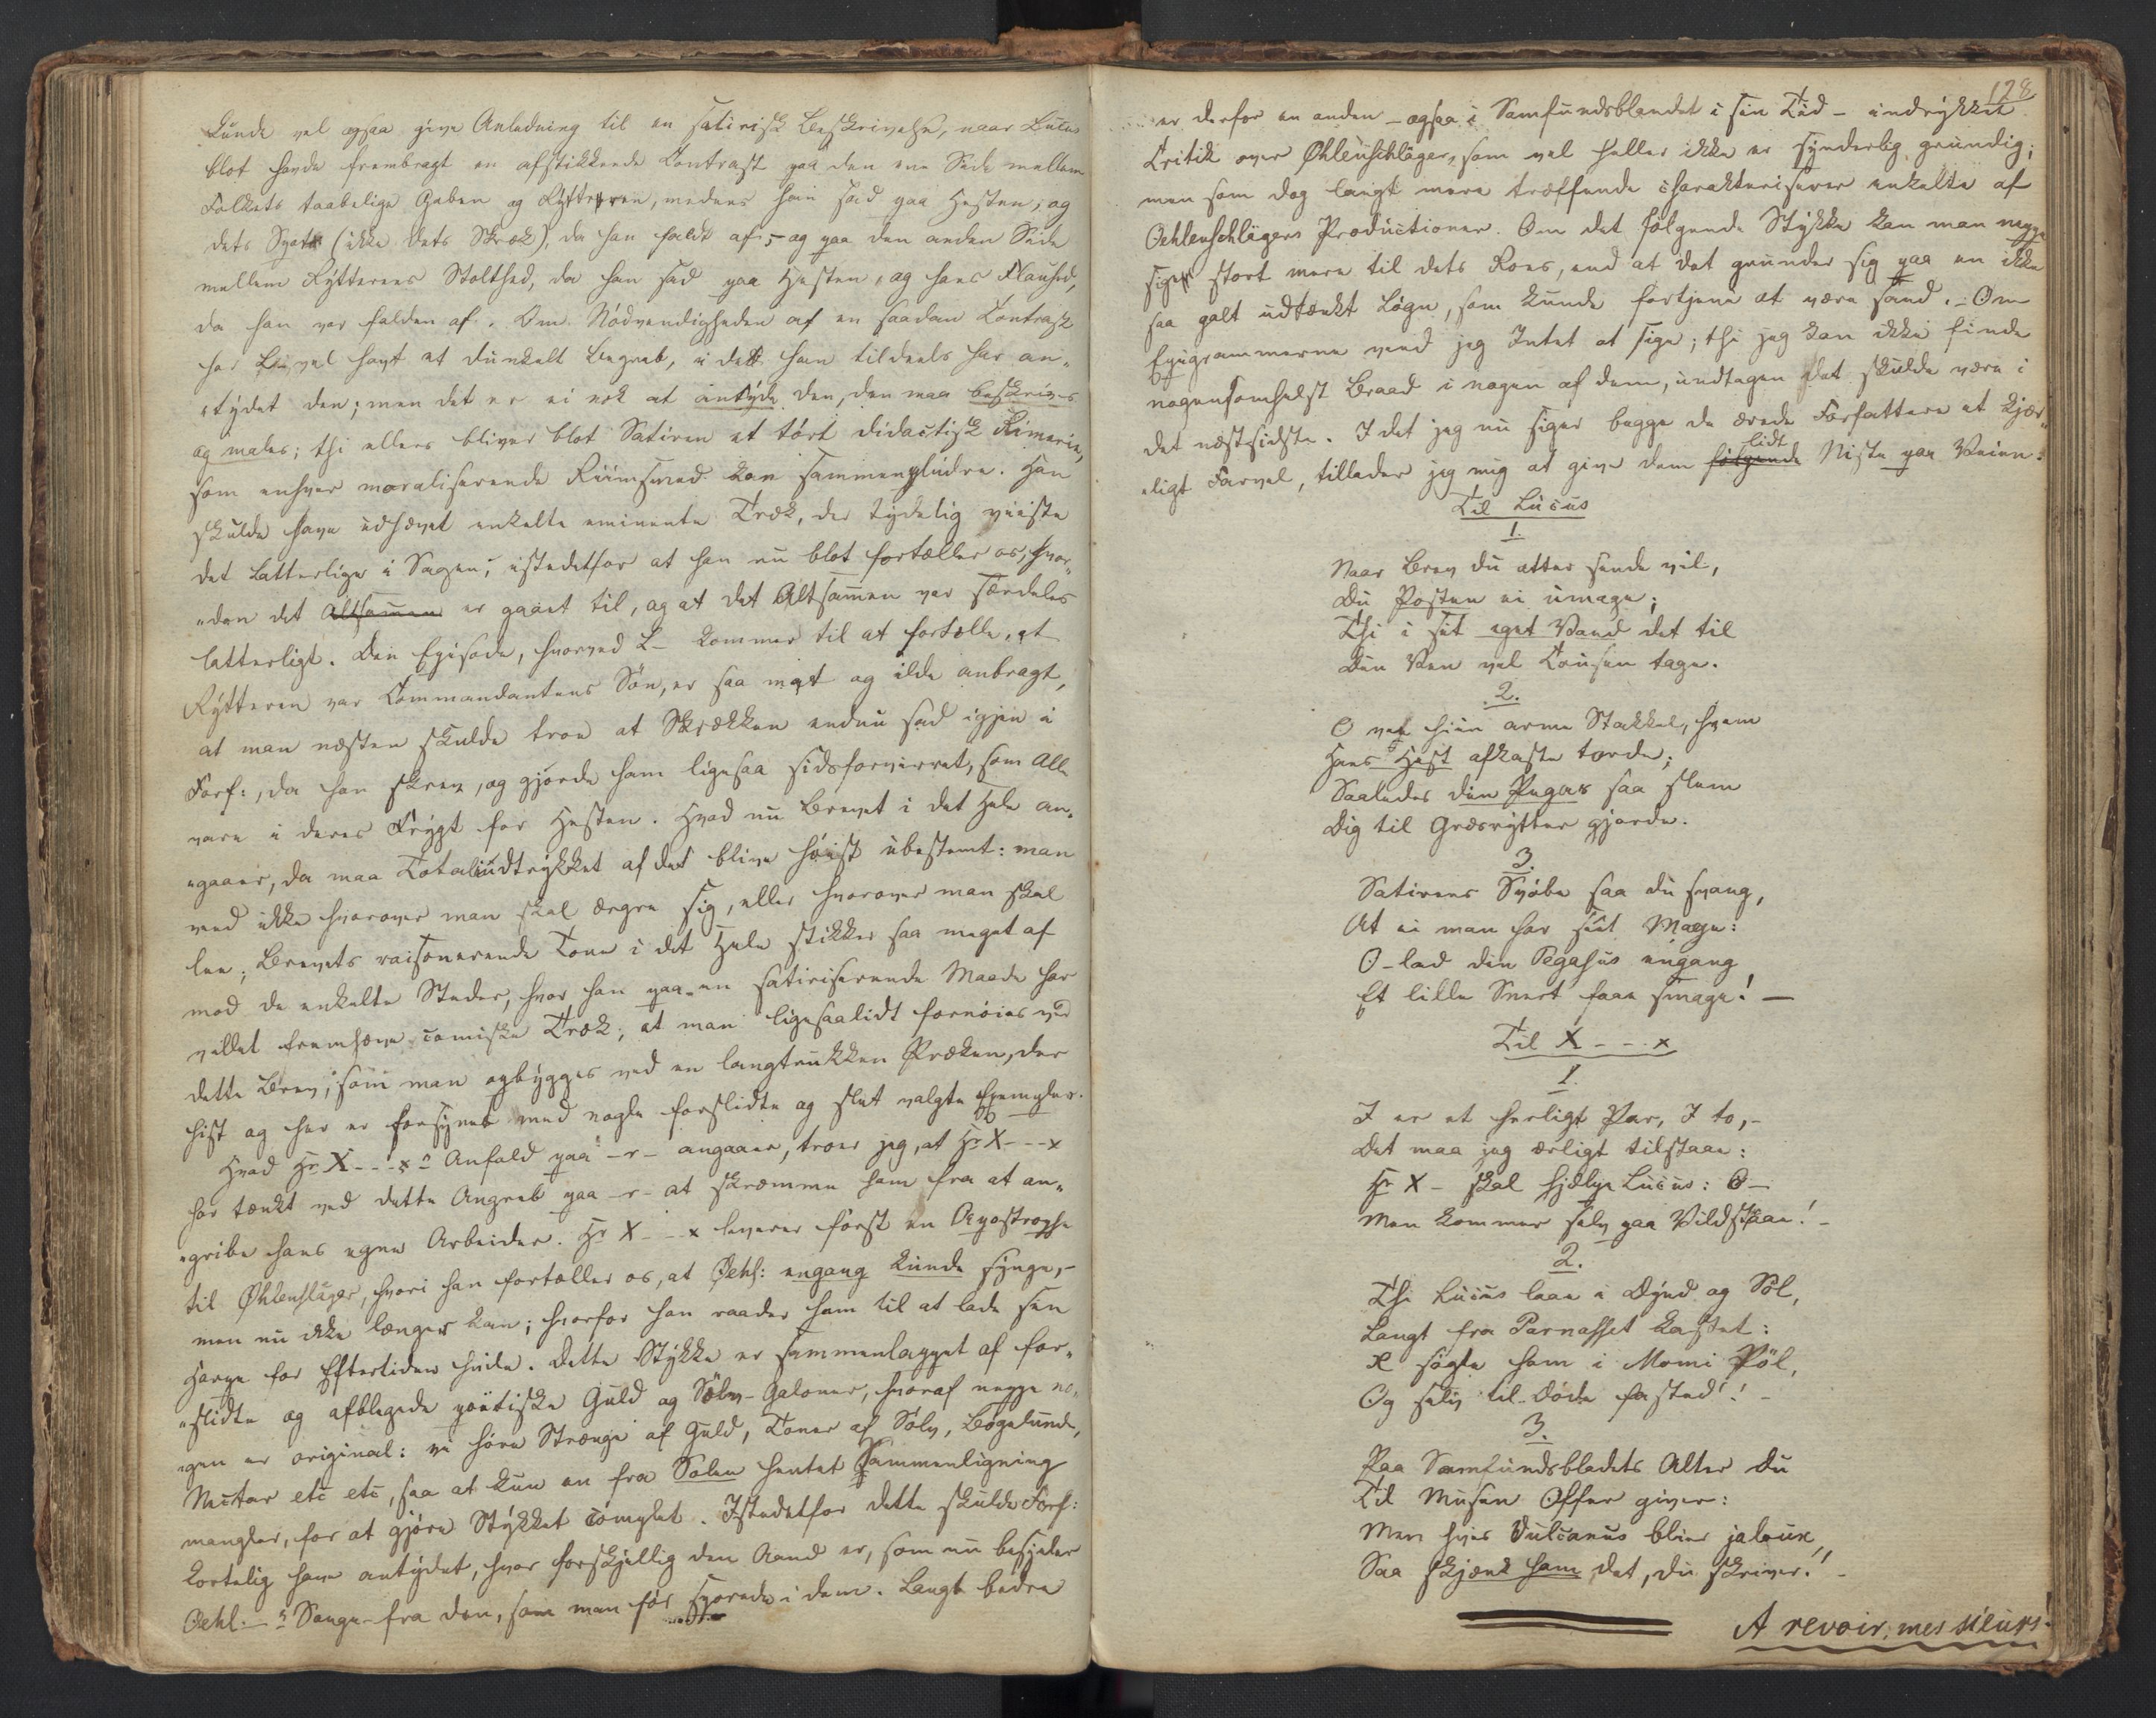 kunde vel ogsaa give Anledning til en satirisk Beskrivelse, naar Lucus
blot havde frembragt en afstikkende Contrast paa den ene Side mellem
Folkets taabelige Gaben og Rytteren, medens han sad paa Hesten, og
dets Spot (ikke dets Skræk), da han faldt af; - og paa den anden Side
mellem Rytterens Stolthed, da han sad paa Hesten, og hans Flauhed,
da han var falden af. Om Nødvendigheden af en saadan Contrast
har L. vel havt et dunkelt Begreb, idet han tildeels har an-
tydet den; men det er ei nok at antyde den, den maa beskrives
og males; thi ellers bliver blot Satiren et tórt didactisk Rimerie,
som enhver moraliserende Riimsmed kan sammenpludre. Han
skulde have udhævet enkelte eminente Træk, der tydelig viiste
det Latterlige i Sagen, istedetfor at han nu blot fortæller os, hvor-
"dan det Altsammen er gaaet til, og at det Altsammen var særdeles
latterligt. Den Episode, hvorved L- kommer til at fortælle, at
Rytteren var Commandantens Søn, er saa mat og ilde anbragt,
at man næsten skulde troe at Skrækken endnu sad igjen i
Forf:, da han skrev, og gjorde ham ligesaa sidsforvirret, som Alle
vare i deres Frygt for Hesten. Hvad nu Brevet i det Hele an-
"gaaer, da maa Totalindtrykket af det blive høist ubestemt: man
veed ikke hvorover man skal ærgre sig, eller hvorover man skal
lee; Brevets raisonerende Tone i det Hele stikker saa meget af
mod de enkelte Steder, hvor han paa en satiriserende Maade har
villet fremhæve comiske Træk; at man ligesaalidt fornøies ved
dette Brev, som man opbygges ved en langtrukken Præken, der
hist og her er forsynet med nogle forslidte og slet valgte Exempler.
Hvad Hr X---x's Anfald paa -r- angaaer, troer jeg, at Hr X---x
har tænkt ved dette Angreb paa -r- at skræmme ham fra at an-
"gribe hans egne Arbeider. Hr X---x leverer først en Apostrophe
til Øhlenslæger, hvori han fortæller os, at Oehl: engang kunde synge,-
men nu ikke længer kan; hvorfor han raader ham til at lade sin
Harpe for Eftertiden hvile. Dette Stykke er sammenlappet af for-
"slidte og afblegede poëtiske Guld og Sølv-Galoner, hvoraf neppe no-
"gen er original: vi høre Strænge af Guld, Toner af Sølv, Bøgelunde,
Nectar etc etc, saa at kun en fra Solen hentet Sammenligning
mangler, for at gjøre Stykket complet. Istedetfor dette skulde Forf:
kortelig have antydet, hvor forskjellig den Aand er, som nu besjeler
Oehl:-s Sange fra den, som man før sporede i dem. Langt bedre
128
er derfor en anden - ogsaa i Samfundsblandet i sin Tid - indrykket
Critik over Øhlenschläger, som vel heller ikke er synderlig grundig;
men som dog langt mere træffende charakteriserer enkelte af
Oehlenschlägers Productioner. Om det følgende Stykke kan man neppe
sige stort mere til dets Roes, end at det grunder sig paa en ikke
saa galt udtænkt Løgn, som kunde fortjene at være sand. - Om
Epigrammerne veed jeg Intet at sige; thi jeg kan ikke finde
nogensomhelst Braad i nogen af dem, undtagen det skulde være i
det næstsidste. I det jeg nu siger begge de ærede Forfattere et kjær-
"ligt Farvel, tillader jeg mig at give dem følgende lidt Niste paa Veien:
Til Lucus
1.
Naar Brev du atter sende vil,
Du Posten ei umage;
Thi i sit eget Vand det til
Din Ven vel Tousen tage.
2.
O vee hiin arme Stakkel, hvem
Hans Hest afkaste torde;
Saaledes din Pegas saa slem
Dig til Græsrytter gjorde.
3.
Satirens Svøbe saa du svang,
At ei man har seet Mage:
O - lad din Pegasus engang
Et lille Snert faae smage! -
Til X---x
1.
I er et herligt Par, I to, -
Det maa jeg ærligt tilstaae:
Hr X - skal hjælpe Lucus: O -
Men kommer selv paa Vildstraae! -
2.
Thi Lucus laae i Dynd og Søl,
Langt fra Parnasset kastet:
X søgte ham i Momi Pöl,
Og selv til-døde fasted'! -
3.
Paa Samfundsbladets Alter du
Til Musen Offer giver:
Men hvis Vulcanus blier jaloux,
Saa skjænk ham det, du skriver! -
A revoir, messieurs!